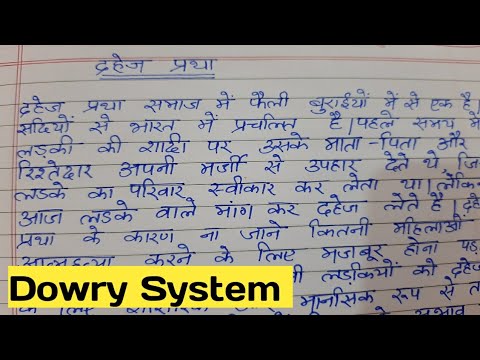 दहेज प्रथा
दहेज प्रथा समाज में फैली बुराईयों में से एक है।
सदियों से भारत में प्रचलित है। पहले समय में
लड़की की शादी पर उसके माता-पिता और
रिश्तेदार अपनी मर्जी से उपहार देते थे,
लड़के का परिवार स्वीकार कर लेता था।
आज लड़के वाले मांग कर दहेज लेते है।
प्रथा के कारण ना जाने कितनी महिलाओं
करने के लिए मजबूर होना
लड़कियों को
Dowry System
मानसिक रूप से